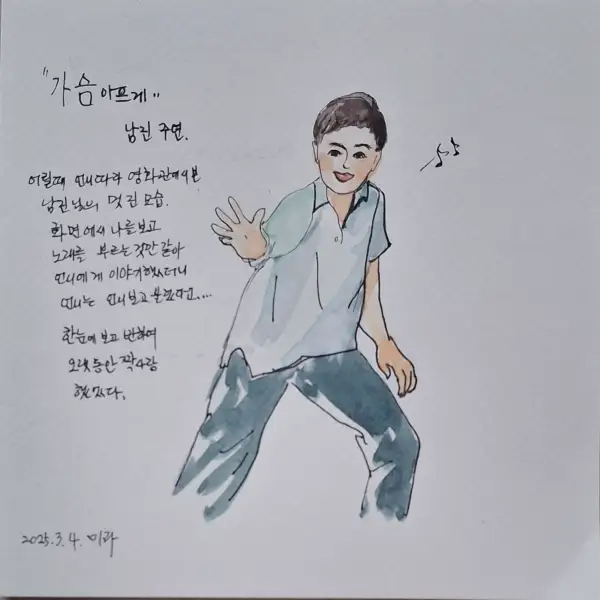 "가슴 아프게"
남진 주연.
어릴때 언니따라 영화관에서본
남진님의 멋진 모습.
화면에서 나를보고
노래를 부르는것만 같아
언니에게 이야기했더니
언니는 언니보고 불렀다고....
한눈에 보고 반하여
오랫동안 짝사랑
했었다.
2025.3.4. 미라